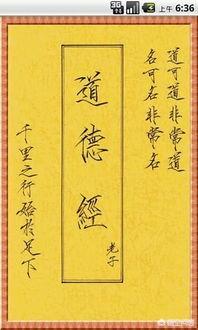 上午 6:36
道可道非常道
名可名非常名
道德經
老子
千里之行始於足下